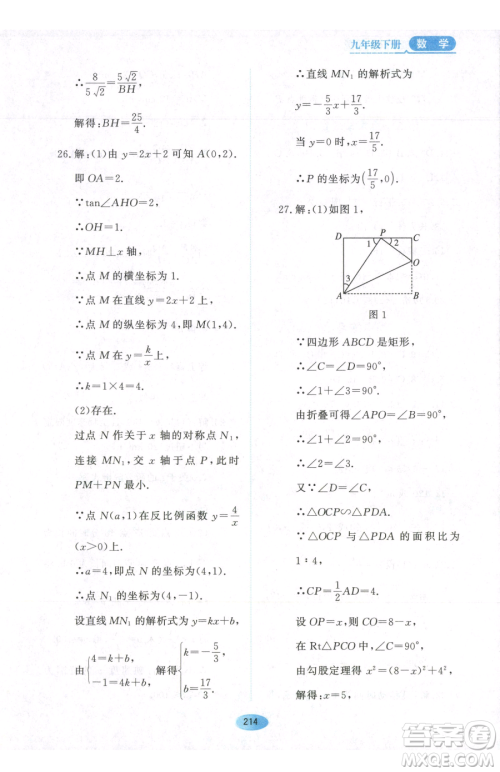 九年级下册 数学
∴8/(5√2)=5√2/BH.
解得:BH=25/4.
26.解:(1)由 y=2x+2 可知 A(0,2).
即 OA=2.
∵tan∠AHO=2,
∴OH=1.
∵MH⊥x 轴,
∴点 M 的横坐标为 1.
∵点 M 在直线 y=2x+2 上,
∴点 M 的纵坐标为 4.即 M(1,4).
∵点 M 在 y=k/x 上,
∴k=1×4=4.
(2)存在.
过点 N 作关于 x 轴的对称点 N₁,
连接 MN₁,交 x 轴于点 P,此时
PM+PN 最小.
∵点 N(a,1)在反比例函数 y=4/x
(x>0)上.
∴a=4,即点 N 的坐标为(4,1).
∴N₁ 的坐标为(4,-1).
设直线 MN₁ 的解析式为 y=kx+b.
由{4=k+b, -1=4k+b 解得{k=-5/3, b=17/3.
∴直线 MN₁ 的解析式为
y=-5/3x+17/3.
当 y=0 时,x=17/5,
∴P 的坐标为(17/5,0)
27.解:(1)如图 1,
D P C
1 2
O
3
A B
图 1
∵四边形 ABCD 是矩形,
∴∠C=∠D=90°.
∴∠1+∠3=90°.
由折叠可得∠APO=∠B=90°,
∴∠1+∠2=90°.
∴∠2=∠3.
∴△OCP∽△PDA.
∵△OCP 与△PDA 的面积比为
1∶4,
∴CP=1/2AD=4.
设 OP=x,则 CO=8-x,
在 Rt△PCO 中,∠C=90°,
由勾股定理得 x²=(8-x)²+4²,
解得:x=5,
214